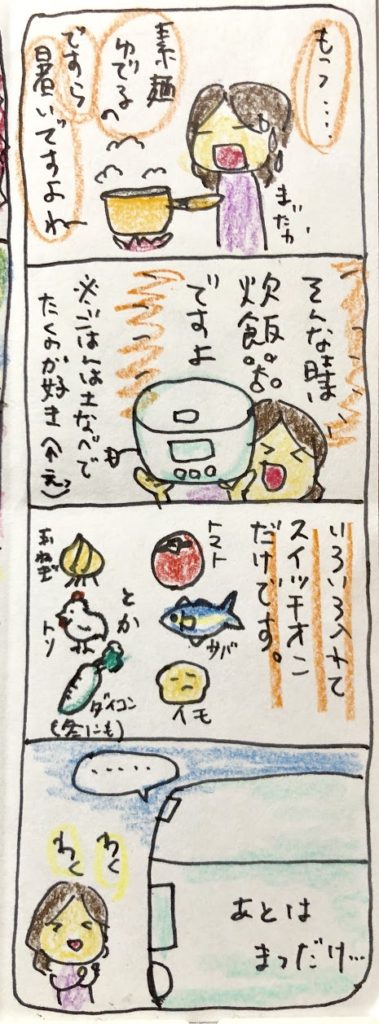 もう....
素麺
ゆでるの
ですら
暑いですよね
まだか、
そんな時は
炊飯器。
ですよ
※ごはんは土なべで
たくのが好き
いろいろ入れて
スイッチオン
だけです。
トマト
サバ
イモ
とか
トリ
ダイコン
(冬にも)
あとは
まつだけ...
.....
わく
わく